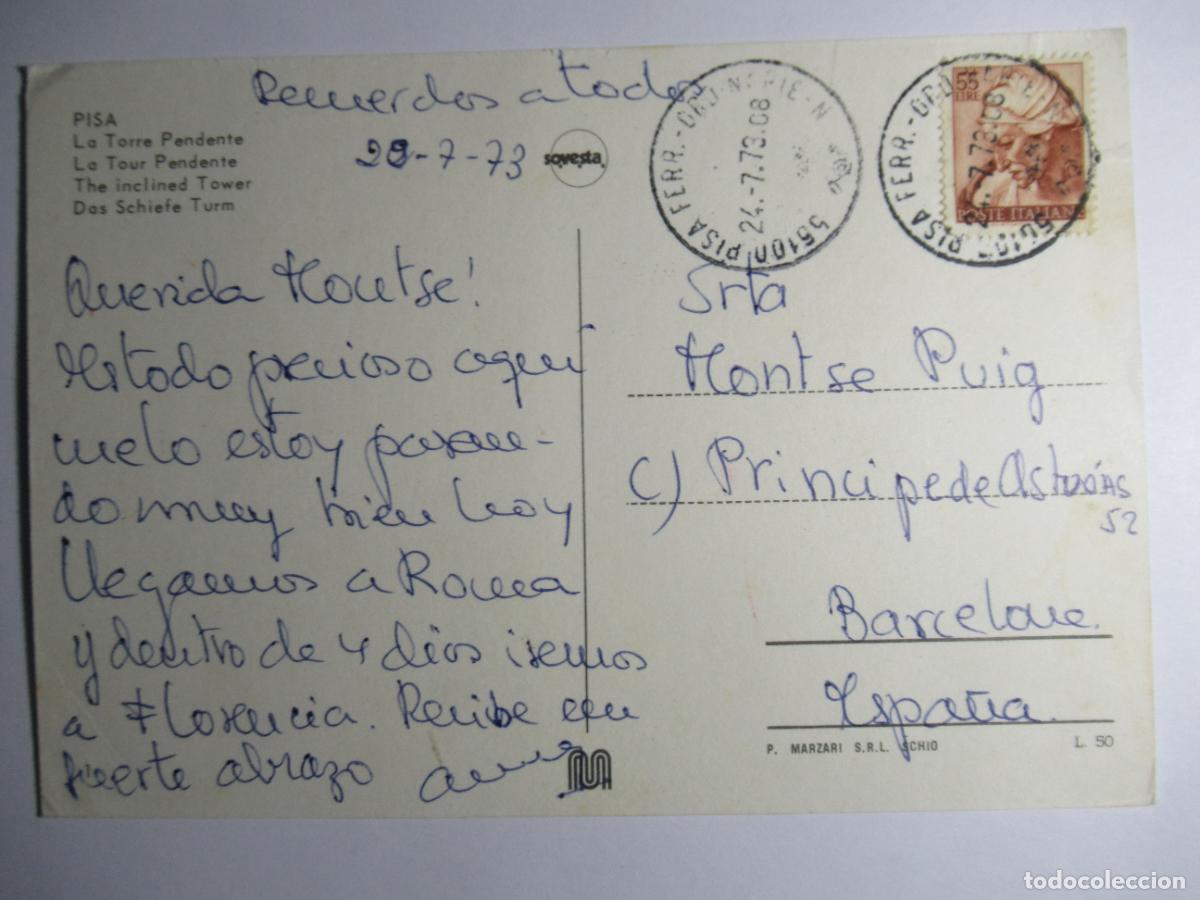 Recuerdos a todos
PISA
La Torre Pendente
La Tour Pendente
The inclined Tower
Das Schiefe Turm
-7-73
sovesta
55 LIRE
POSTE ITALIANE
56100 PISA FERR.-ORDINARIE-N
24.-7.73.08
56100 PISA FERR.-
24.-7.73.08
Querida Montse!
Es todo precioso aqui
me lo estoy pasan-
do muy bien hoy
llegamos a Roma
y dentro de 4 dias iremos
a Florencia. Recibe un
fuerte abrazo
Srta
Montse Puig
C) Principe de Asturias
52
Barcelona
España
P. MARZARI S.R.L. SCHIO
L. 50
todocoleccion